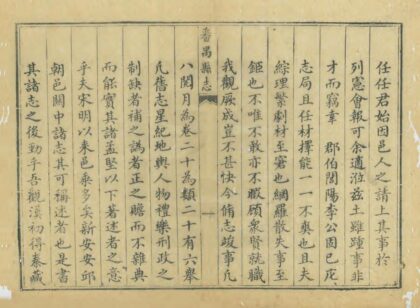 任任君始因邑人之請上其事於
列憲會報可余適蒞茲土雖踵事非
才而竊幸 郡伯閻陽李公因已庀
志局且任材擇能一一不爽也且夫
綜理繁劇材至富也網羅散失事至
鉅也不唯不敢亦不暇顧衆賢就職
我觀厥成豈不甚快今脩志竣事凡
番禺縣志
一
八閱月為卷二十為類二十有六舉
凡舊志星紀地輿人物禮樂刑政之
制缺者補之譌者正之贍而不雜典
而能實其諸孟堅以下著述者之意
乎夫宋明以来邑乘多矣新安安邱
朝邑關中諸志其可稱述者也是書
其諸志之後勁乎吾觀漢初得秦藏